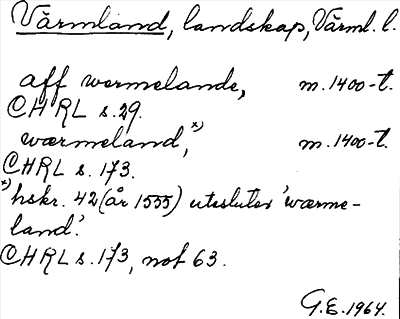 Värmland, landskap, Värml. l.
aff wermelande, m. 1400-t.
CHRL s. 29.
wærmeland,*) m. 1400-t.
CHRL s. 173.
*) hskr. 42 (år 1555) utesluter 'wærme-
land'.
CHRL s. 173, not 63.
G.E. 1964.